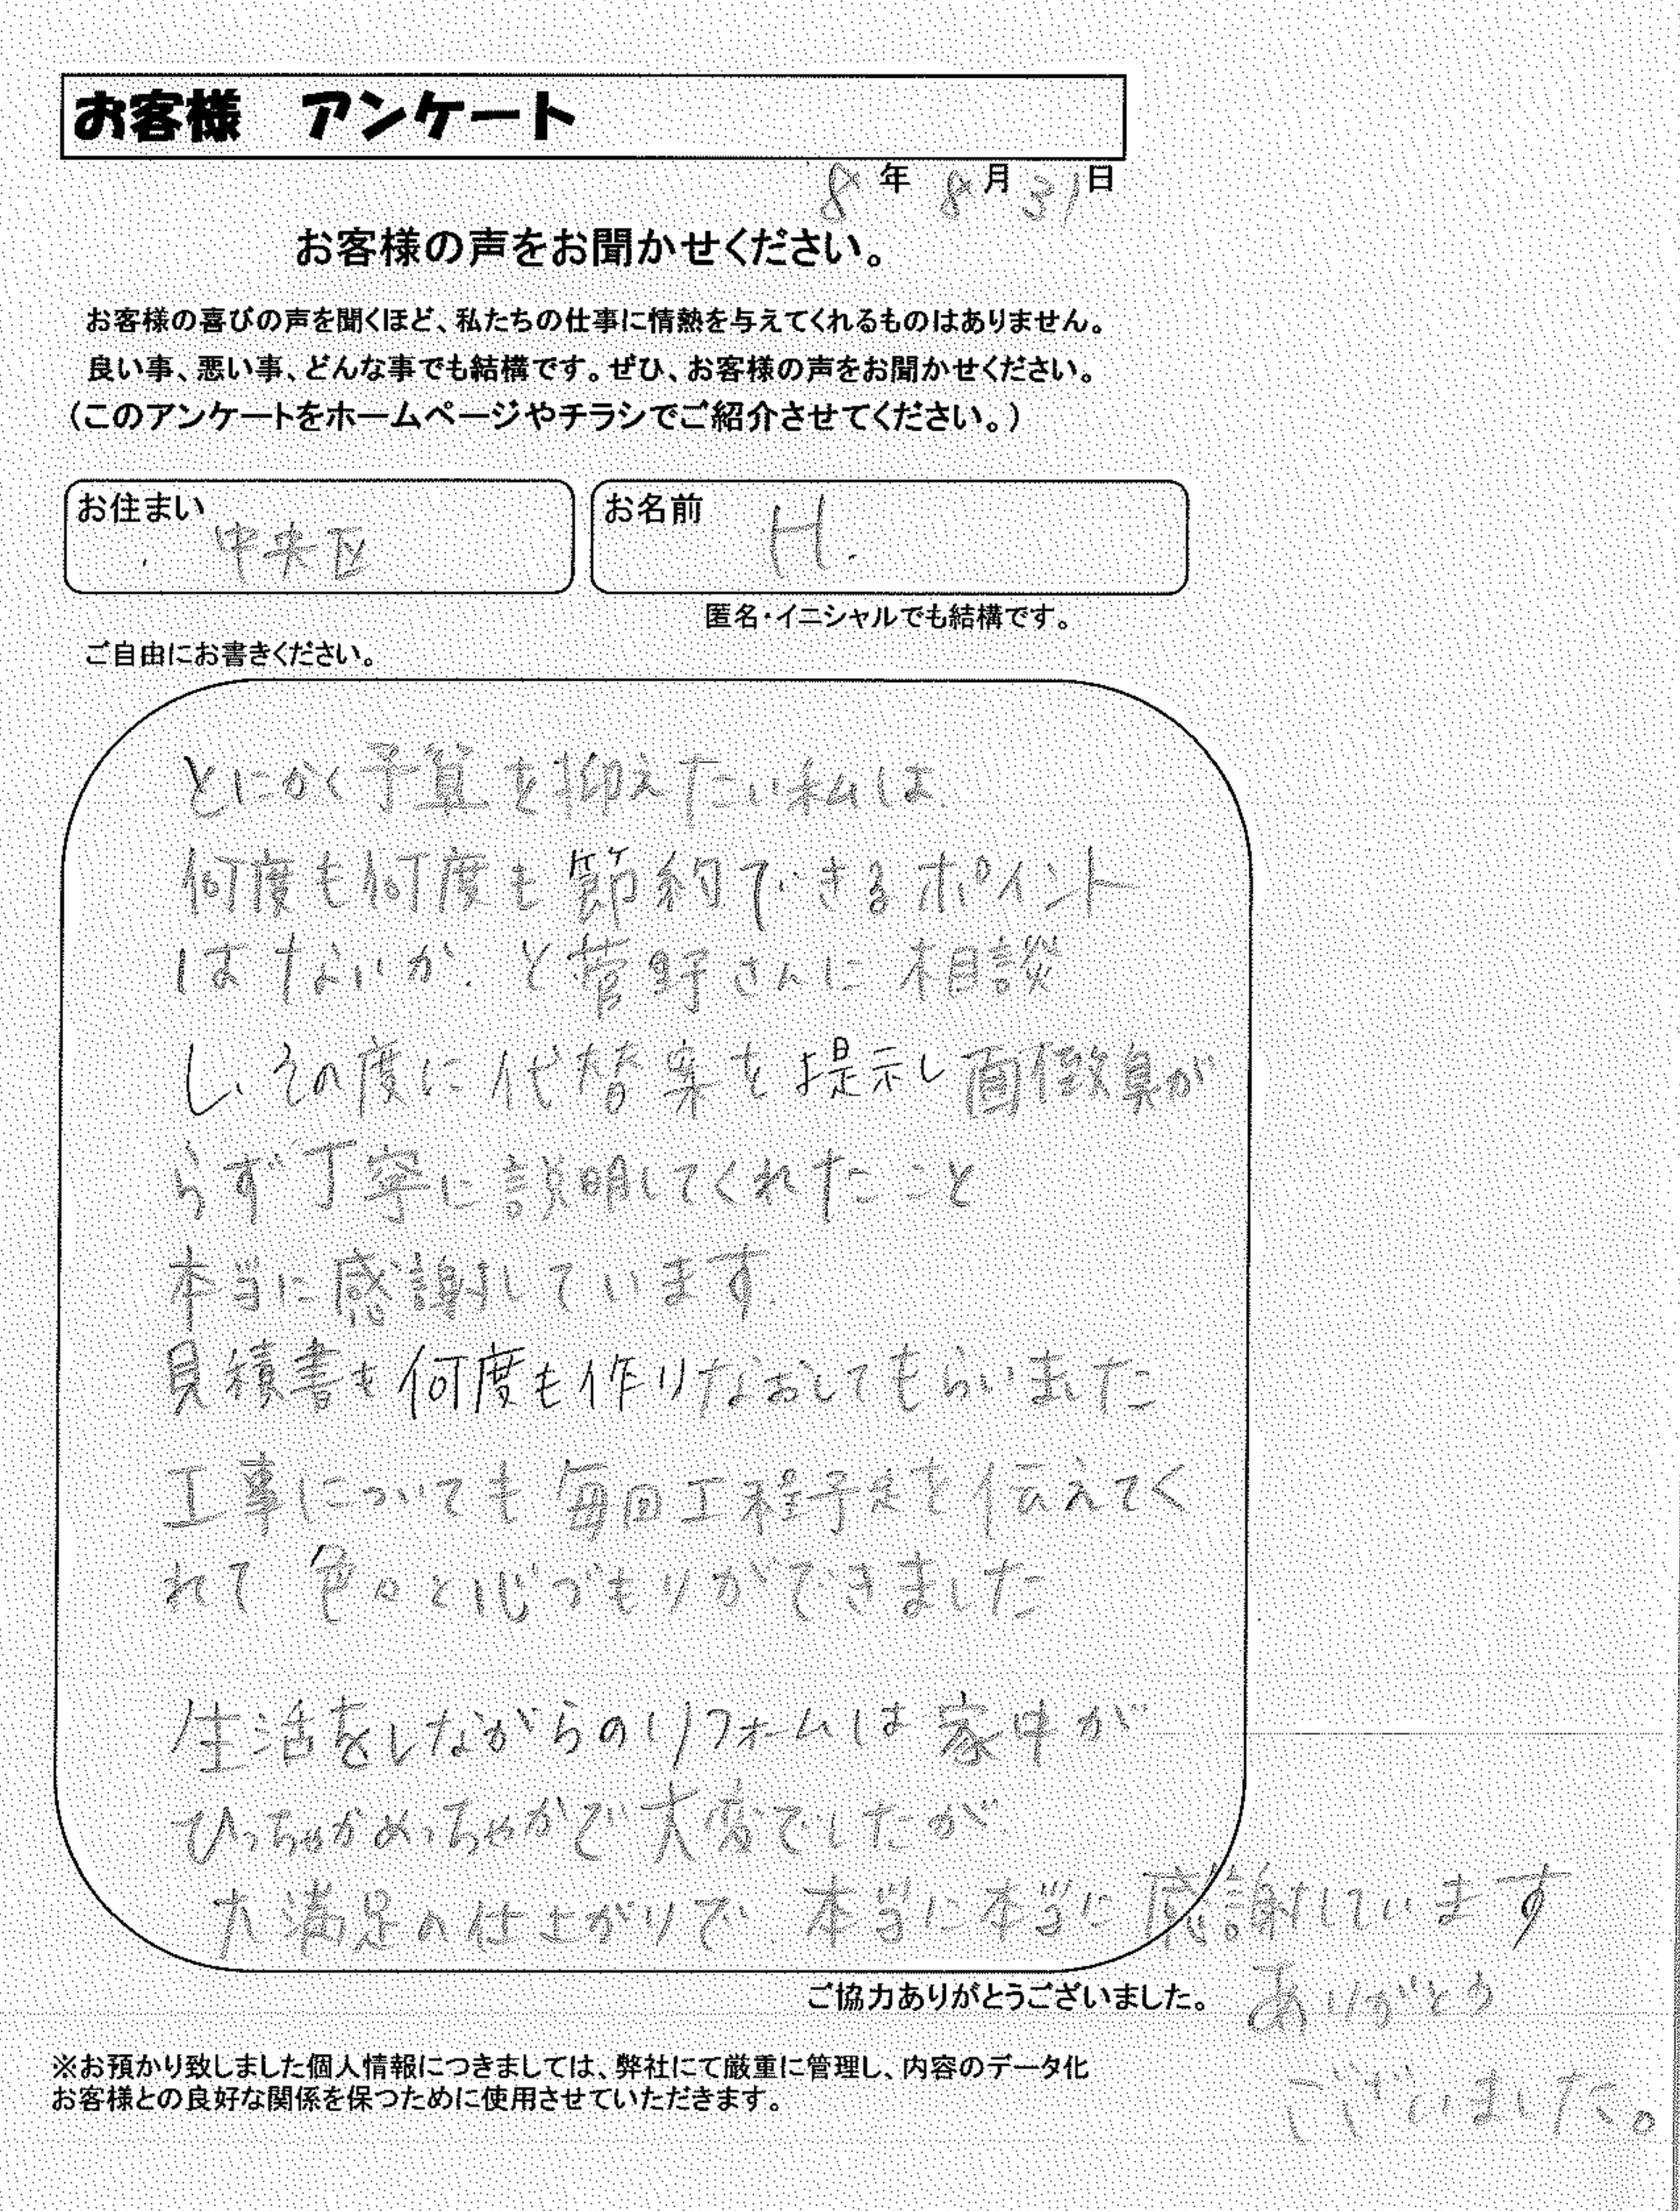 お客様 アンケート
8年 8月 31日
お客様の声をお聞かせください。
お客様の喜びの声を聞くほど、私たちの仕事に情熱を与えてくれるものはありません。
良い事、悪い事、どんな事でも結構です。ぜひ、お客様の声をお聞かせください。
（このアンケートをホームページやチラシでご紹介させてください。）
お住まい 中央区
お名前 H.
匿名・イニシャルでも結構です。
ご自由にお書きください。
とにかく予算を抑えたい私は、
何度も何度も節約できるポイント
はないか、と菅野さんに相談
し、その度に代替案を提示し面倒臭が
らず丁寧に説明してくれたこと
本当に感謝しています。
見積書も何度も作りなおしてもらいました
工事についても毎回工程予定を伝えてく
れて色々と心づもりができました
生活をしながらのリフォームは家中が
ひっちゃかめっちゃかで大変でしたが
大満足の仕上がりで、本当に本当に感謝しています
ありがとう
ございました。
ご協力ありがとうございました。
※お預かり致しました個人情報につきましては、弊社にて厳重に管理し、内容のデータ化
お客様との良好な関係を保つために使用させていただきます。